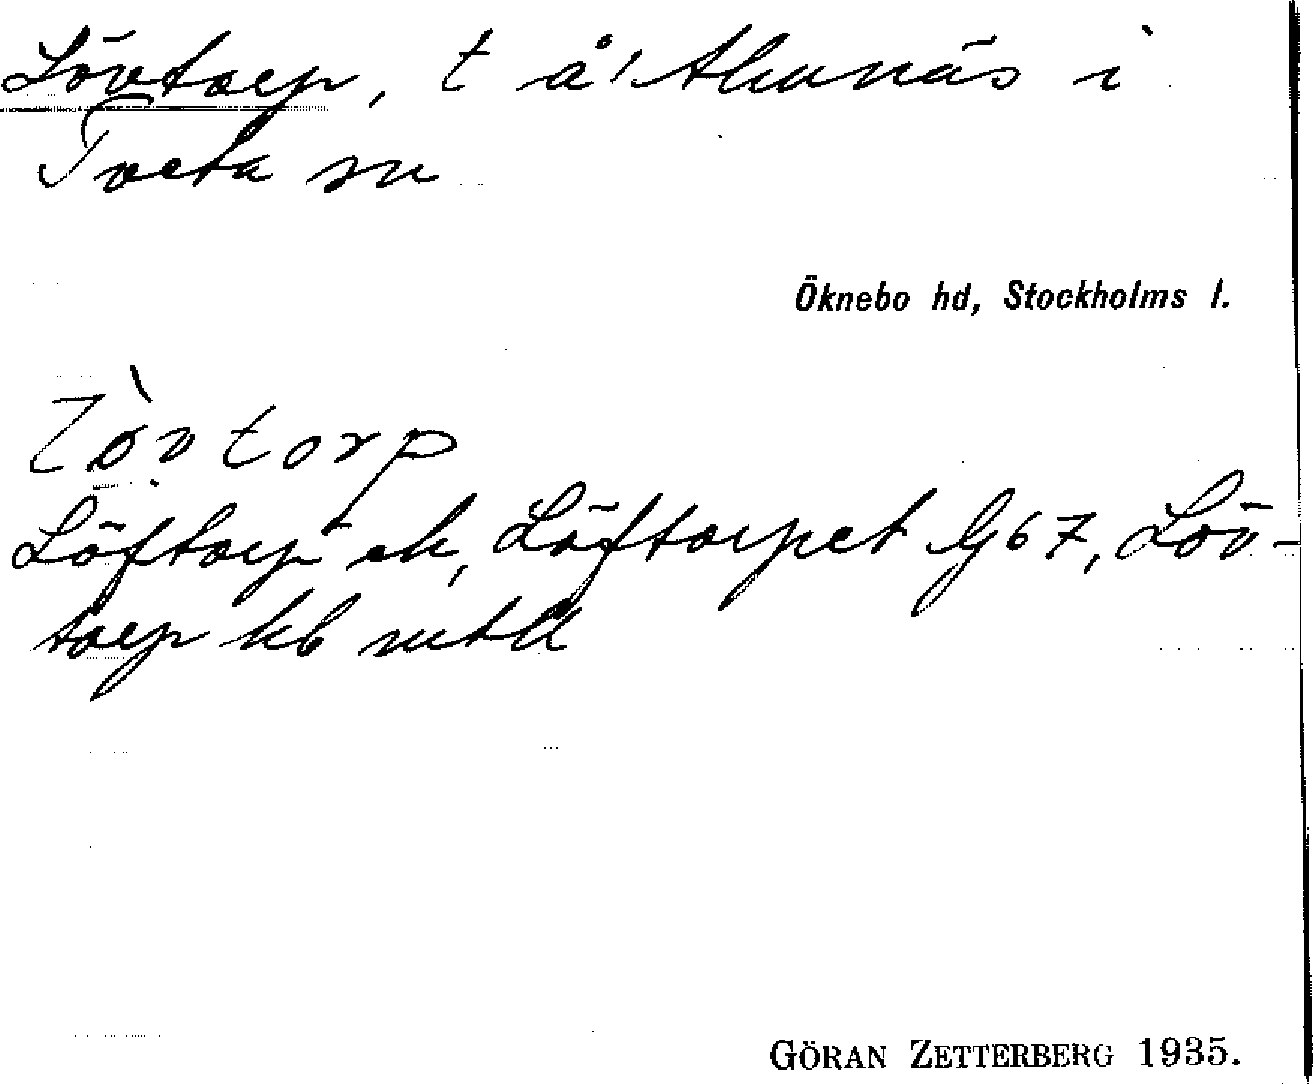 Lövtorp, t å Almnäs i
Tveta sn
Öknebo hd, Stockholms l.
lòvtorp
Löftorp ek, Löftorpet G67, Löv-
torp kb mtll
GÖRAN ZETTERBERG 1935.